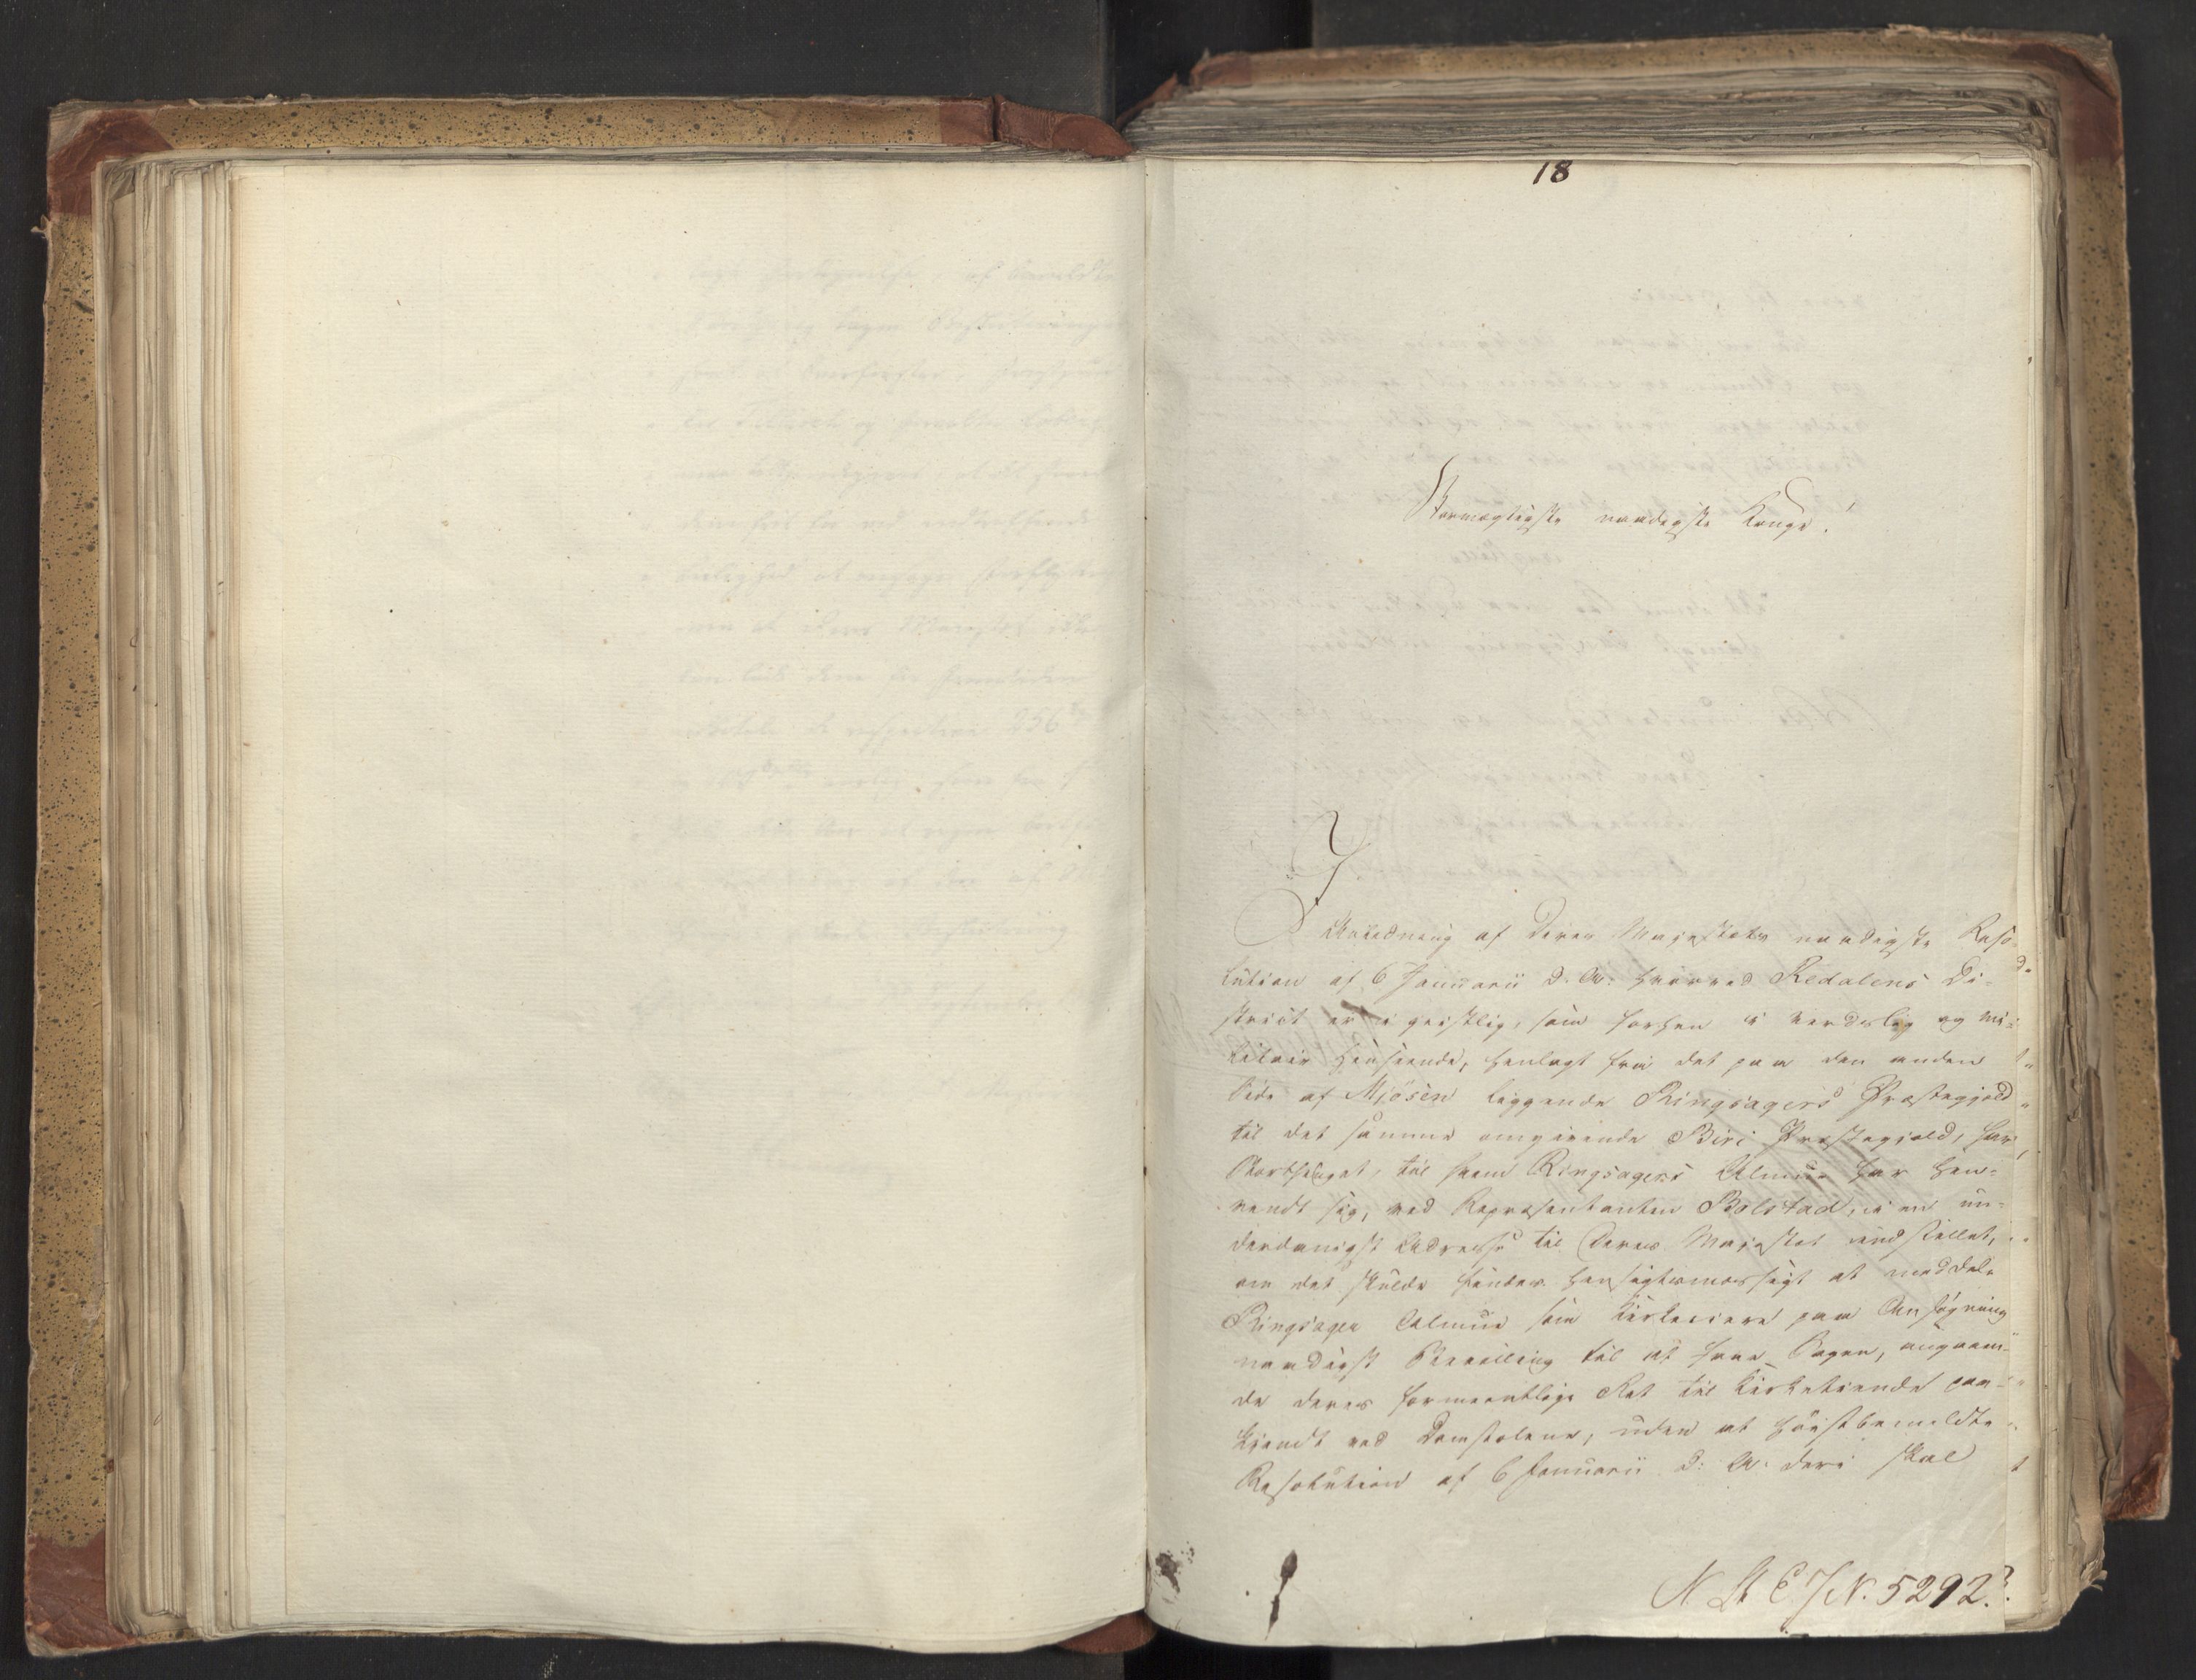 18
Stormægtigste naadigste Konge!
I Anledning af Deres Majestæts naadigste Reso-
lution af 6 Januarii d. A. hvorved Redalens Di-
strict er i geistlig, som forhen i verdslig og mi-
litair Henseende, henlagt fra det paa den anden
Side af Mjösen liggende Ringsagers Præstegjæld
til det samme omgivende Biri Præstegjæld, har
Storthinget, til hvem Ringsagers Almue har hen-
vendt sig, ved Repræsentanten Bolstad, i en un-
derdanigst Adresse til Deres Majestæt indstillet,
om det skulde findes hensigtsmæssigt at meddele
Ringsager Almue som Kirkeeiere paa Ansøgning
naadigst Bevilling til at faae Sagen, angaaen-
de deres formeentlige Ret til Kirketiende paa-
kjendt ved Domstolene, uden at høistbemeldte
Resolution af 6 Januarii d. A. deri skal
N. St. E. J. N. 5292.